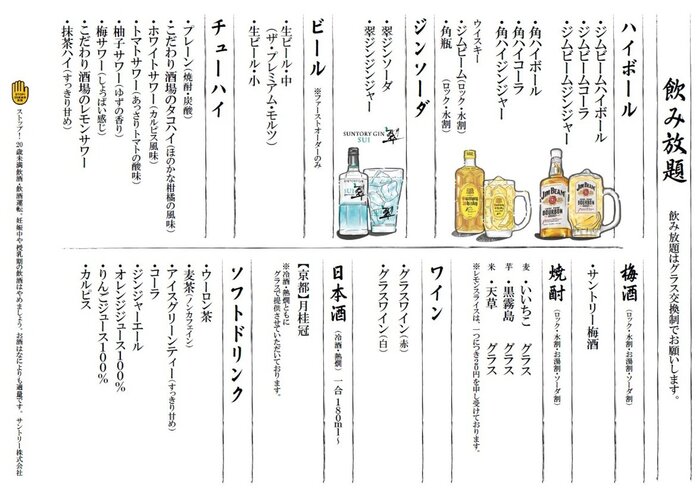 飲み放題
飲み放題はグラス交換制でお願いします。
ハイボール
・ジムビームハイボール
・ジムビームコーラ
・ジムビームジンジャー
・角ハイボール
・角ハイコーラ
・角ハイジンジャー
ウイスキー
・ジムビーム(ロック・水割)
・角瓶(ロック・水割)
JIM BEAM
BOURBON
JIM BEAM
BOURBON
ジンソーダ
・翠ジンソーダ
・翠ジンジンジャー
SUNTORY GIN
SUI
翠
ビール
※ファーストオーダーのみ
・生ビール・中
(ザ・プレミアム・モルツ)
・生ビール・小
チューハイ
・プレーン(焼酎・炭酸)
・こだわり酒場のタコハイ(ほのかな柑橘の風味)
・ホワイトサワー(カルピス風味)
・トマトサワー(あっさりトマトの酸味)
・柚子サワー(ゆずの香り)
・梅サワー(しょっぱい感じ)
・こだわり酒場のレモンサワー
・抹茶ハイ(すっきり甘め)
梅酒
(ロック・水割・お湯割・ソーダ割)
・サントリー梅酒
焼酎
(ロック・水割・お湯割・ソーダ割)
麦 ・いいちこ グラス
芋 ・黒霧島 グラス
米 ・天草 グラス
※レモンスライスは、一つにつき20円を申し受けております。
ワイン
・グラスワイン(赤)
・グラスワイン(白)
日本酒
(冷酒・熱燗) 一合 180ml~
【京都】月桂冠
※冷酒・熱燗ともに
グラスで提供させていただいております。
ソフトドリンク
・ウーロン茶
・麦茶(ノンカフェイン)
・アイスグリーンティー(すっきり甘め)
・コーラ
・ジンジャーエール
・オレンジジュース100%
・りんごジュース100%
・カルピス
ストップ!20歳未満飲酒・飲酒運転。妊娠中や授乳期の飲酒はやめましょう。お酒はなによりも適量です。サントリー株式会社